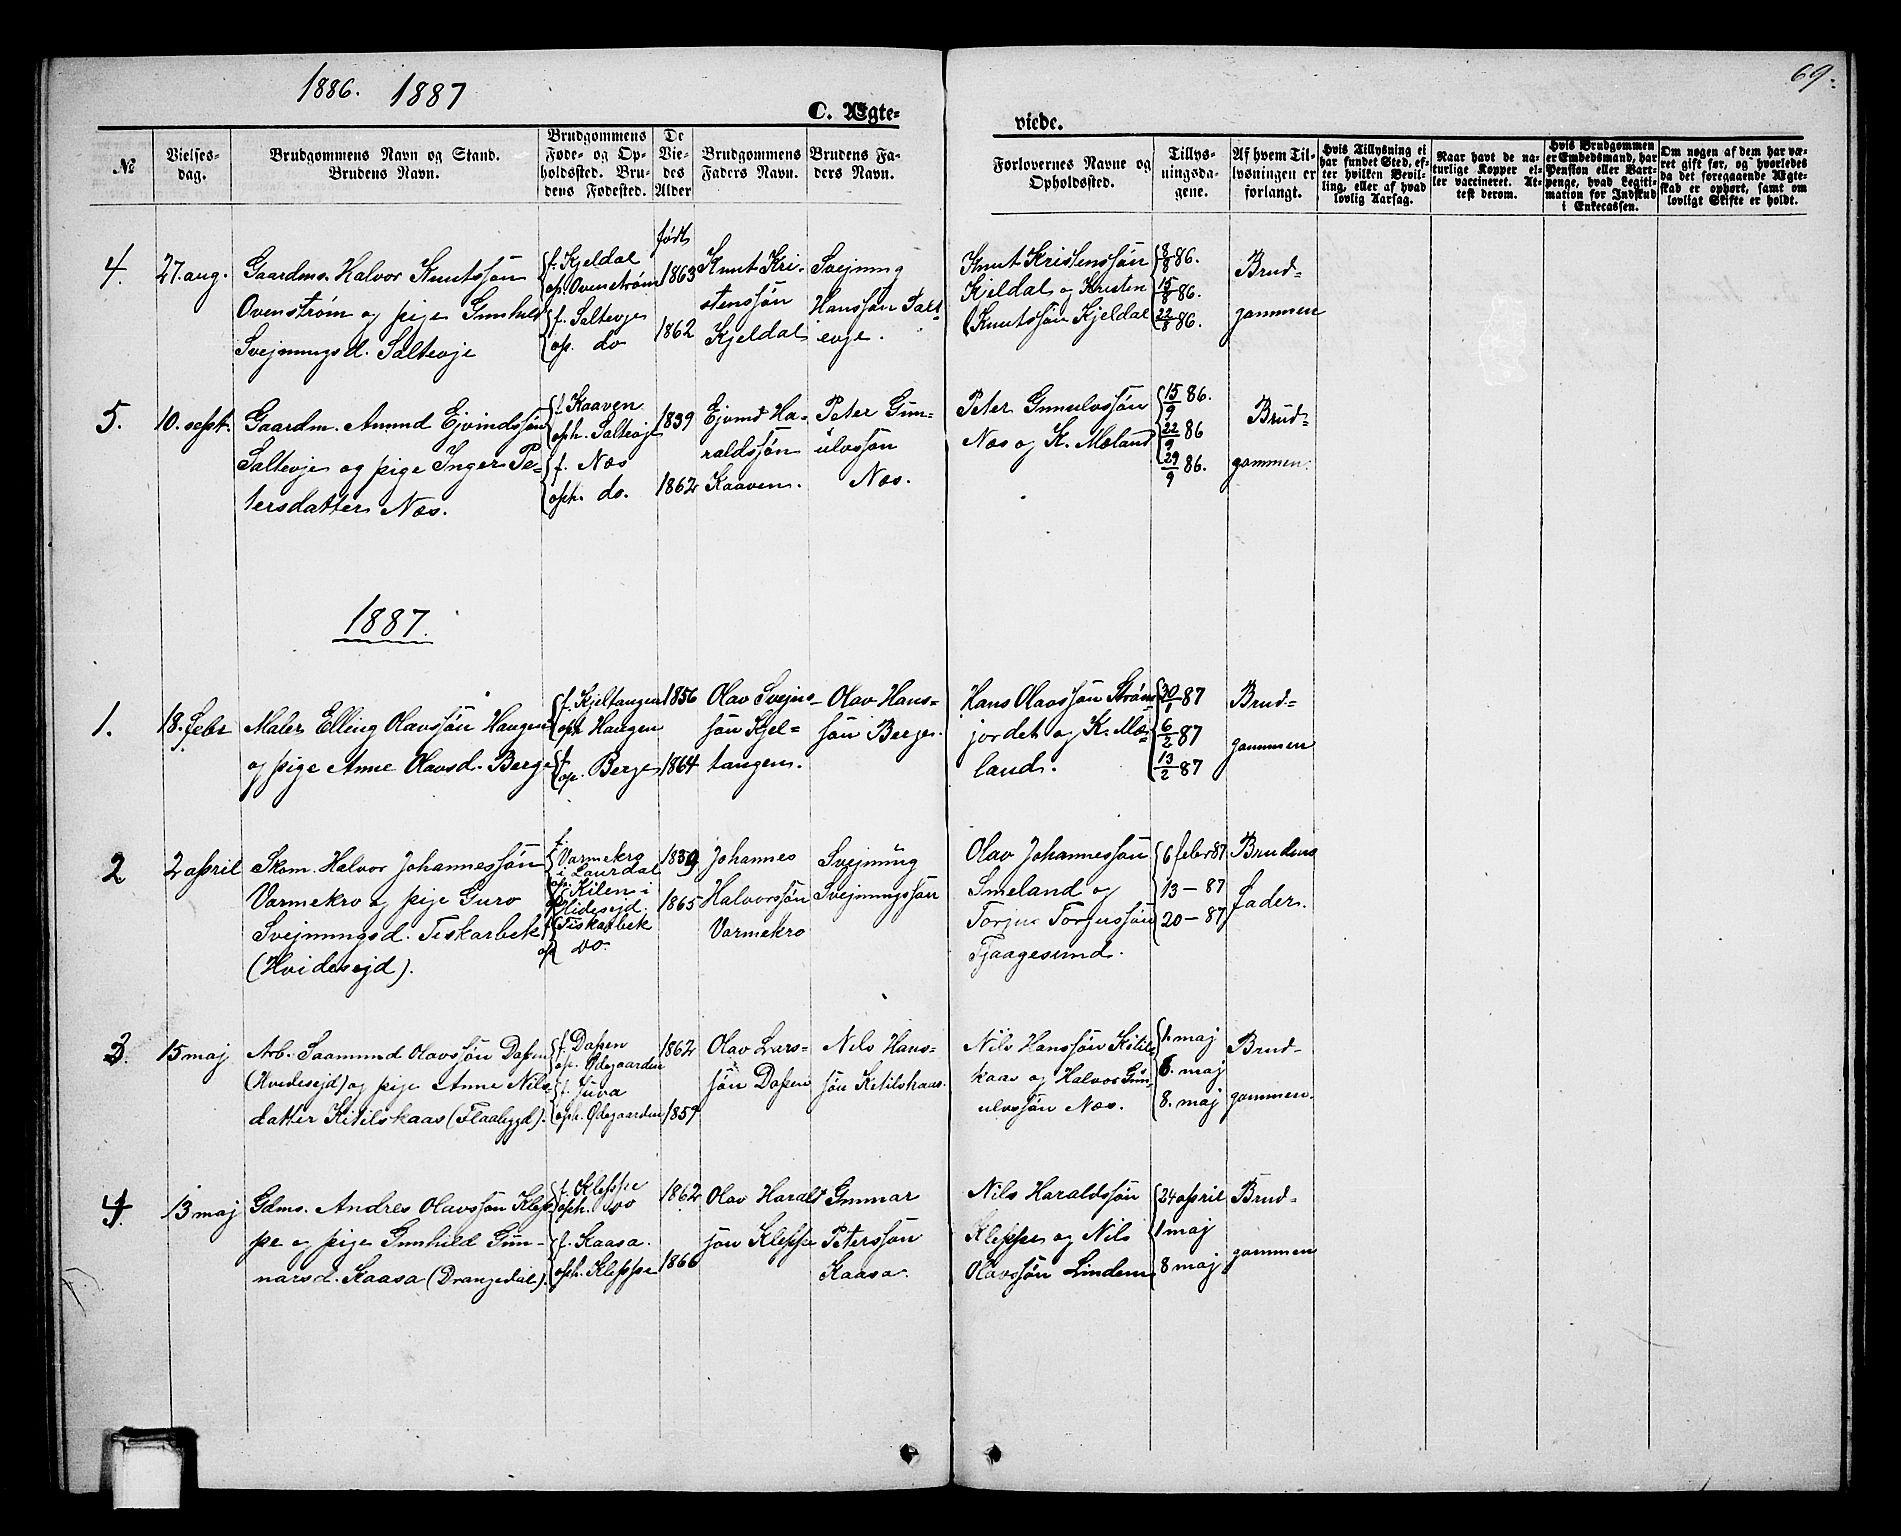 1886. 1887
69.
C. Ægte-
viede.
№
Vielses-
dag.
Brudgommens Navn og Stand.
Brudens Navn.
Brudgommens
Føde- og Op-
holdssted. Bru-
dens Fødested.
De
Vie-
des
Alder
Brudgommens
Faders Navn.
Brudens Fa-
ders Navn.
Forlovernes Navne og
Opholdssted.
Tillys-
ningsda-
gene.
Af hvem Til-
lysningen er
forlangt.
Hvis Tillysning ei
har fundet Sted, ef-
ter hvilken Bevil-
ling, eller af hvad
lovlig Aarsag.
Naar havt de na-
turlige Kopper el-
ler vaccineret. At-
test derom.
Hvis Brudgommen
er Embedsmand, har
Pension eller Vart-
penge, hvad Legiti-
mation for Indskud
i Enkecassen.
Om nogen af dem har væ-
ret gift før, og hvorledes
da det foregaaende Ægte-
skab er ophørt, samt om
lovligt Skifte er holdt.
4.
27. aug.
Gaardm. Halvor Knutssøn
Ovenstrøm og pige Gunhild
Svejnungsd. Saltevje
f. Kjeldal
op. Ovenstrøm
f. Saltevje
op. do
født
1863
1862
Knut Kri-
stenssøn
Kjeldal
Svejnung
Hanssøn Salt-
evje.
Knut Kristenssøn
Kjeldal og Kristen
Knutssøn Kjeldal
8/8 86.
15/8 86.
22/8 86.
Brud-
gommen
5.
10. sept.
Gaardm. Amund Ejvindssøn
Saltevje og pige Inger Pe-
tersdatter Næs.
f. Kaaven
oph. Saltevje
f. Næs
oph. do.
1839
1862
Ejvind Ha-
raldssøn
Kaaven.
Peter Gun-
ulvssøn
Næs.
Peter Gunnulvssøn
Næs og K. Mæland
15/9 86.
22/9 86
29/9 86.
Brud-
gommen.
1887.
1.
18. febr
Maler Elling Olavssøn Haugen
og pige Anne Olavsd. Berge
f. Kjeltangen
oph Haugen
f.
op. Berge
1856
1864
Olav Svejns-
søn Kjel-
tangen.
Olav Hans-
søn Berge.
Hans Olavssøn Strøm-
jordet og K. Mæ-
land.
30/1 87
6/2 87
13/2 87
Brud-
gommen
2
2 april
Skom. Halvor Johannessøn
Varmekro og pige Guro
Svejnungsd. Tiskarbek
(Hvidesejd).
f.
Varmekro
i Laurdal
op. Kilen i
Hvidesejd.
f. Tiskarbek
op do.
1839
1865
Johannes
Halvorssøn
Varmekro
Svejnung
Svejnungssøn
Olav Johannessøn
Smeland og
Torjus Torjussøn
Fjaagesund.
6 febr 87
13 – 87
20 – 87
Brudens
fader.
3.
15 maj
Arb. Saamund Olavssøn Dapen
(Hvidesejd) og pige Anne Nils-
datter Kitilskaas (Flaabygd).
f. Dapen
op. Ødegaarden
f. Juva
oph. Ødegaarden
1862
1859
Olav Lars-
søn Dapen
Nils Hans-
søn Kitilskaas.
Nils Hanssøn Kitils-
kaas og Halvor Gun-
ulvssøn Næs.
1. maj
6. maj
8. maj
Brud-
gommen.
4.
13 maj
Gdm. Andres Olavssøn Klep-
pe og pige Gunhild Gun-
narsd. Kaasa (Drangedal).
f. Kleppe
oph. do
f. Kaasa.
oph. Kleppe
1862
1866
Olav Harald-
søn Kleppe
Gunnar
Peterssøn
Kaasa.
Nils Haraldssøn
Kleppe og Nils
Olavssøn Lindem
24 april
1 maj
8 maj
Brud-
gommen